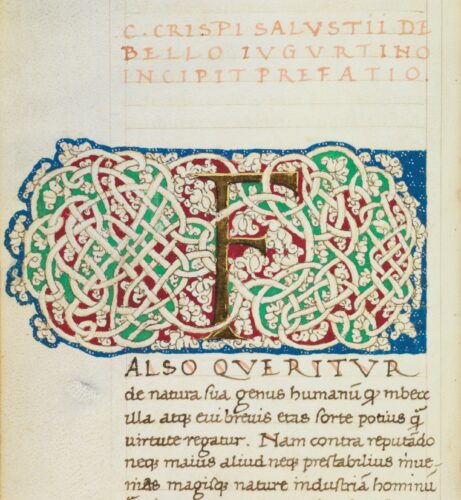 C. CRISPI SALVSTII DE
BELLO IVGVRTINO
INCIPIT PREFATIO.
F
ALSO QVERITVR
de natura sua genus humanū qđ imbecc
illa atqȝ evi brevis etas sorte potius q̄
virtute regatur. Nam contra reputādo
neqȝ maius aliud neqȝ prestabilius inve
nias magisqȝ nature industriā hominū